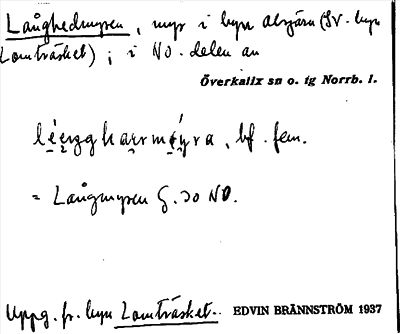 Långhedmyren, myr i byn abyjärn (SV. byn
Lomträsket); i NO. delen av
Överkalix sn o. tg Norrb. l.
bf. fem.
= Långmyren G. 20 NO.
Uppg. fr. byn Lomträsket. EDVIN BRÄNNSTRÖM 1937